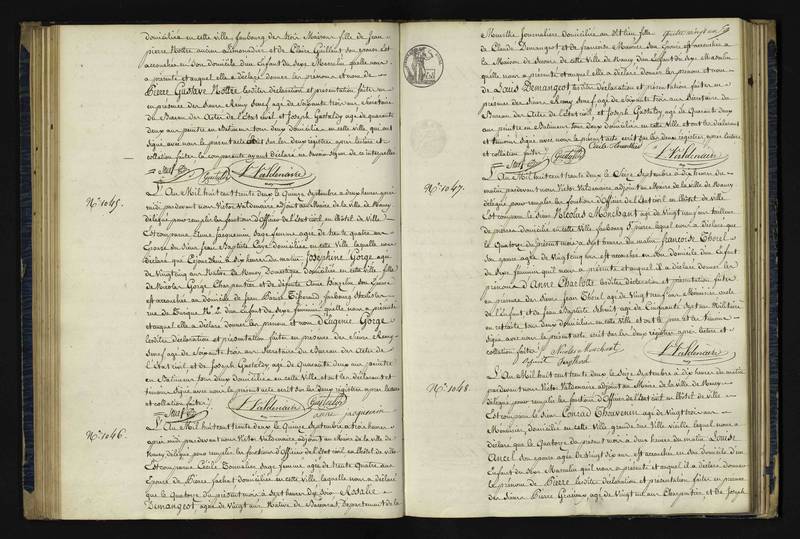 domiciliée en cette ville, faubourg des trois Maisons fille de Jean
pierre Nottre ancien Limonadier et de Claire Guillent son épouse est
accouchée en son domicile d'un Enfant du Sexe Masculin qu'elle nous
a présenté et auquel elle a déclaré donner les prénoms et nom de
Pierre Gustave Nottre lesdites déclaration et présentation faites en
présence des Sieurs Remy Senef agé de Soixante trois ans Secrétaire
du Bureau des Actes de l'Etat civil et Joseph Gastaldy agé de quarante
deux ans peintre en Batiment tous deux domiciliés en cette ville, qui ont
signé avec nous le présent acte écrit sur les deux registres après lecture et
collation faites la comparante ayant déclaré ne savoir signer de ce interpellée
Senef Gastaldy V. Valdenaire
N.º 1045.
L'An Mil huit cent trente deux le Quinze Septembre a deux heures après
midi pardevant nous Victor Valdenaire adjoint au Maire de la ville de Nancy
délégué pour remplir les fonctions d'Officier de l'Etat civil en l'hôtel de Ville
Est comparue Anne Jacquemin Sage femme agée de trente quatre ans
Epouse du Sieur Jean Baptiste domiciliée en cette ville laquelle nous a
déclaré que Cejourd'hui à Six heures du matin Josephine Gorge agée
de Vingt cinq ans Native de Domestique domiciliée en cette ville fille
de Nicolas Gorge Charpentier et de défunte Anne Bazelin son Epouse
est accouchée au domicile de Jean faubourg Stanislas
rue de Turique N.º 2 d'un Enfant du Sexe féminin qu'elle nous a présenté
et auquel elle a déclaré donner les prénoms et nom d'Eugénie Gorge
lesdites déclaration et présentation faites en présence des Sieurs Remy
Senef agé de Soixante trois ans Secrétaire du Bureau des Actes de
l'Etat civil et de Joseph Gastaldy agé de Quarante deux ans peintre
en Batiment tous deux domiciliés en cette Ville et ont les déclarant et
témoins signé avec nous le présent acte écrit sur les deux registres après lecture
et collation faites
Senef V. Valdenaire Gastaldy anne jacquemin
N.º 1046.
L'An Mil huit cent trente deux le Quinze Septembre a trois heures
après midi pardevant nous Victor Valdenaire adjoint au Maire de la ville de
Nancy délégué pour remplir les fonctions d'Officier de l'Etat civil en l'hôtel de Ville
Est comparue Cécile Sage femme agée de trente Quatre ans
Epouse de Pierre domiciliée en cette Ville laquelle nous a déclaré
que le Quatorze du présent mois à Sept heures du Soir Rosalie
Demangeot agée de Vingt ans Native de Baccarat Département de la
Meurthe Journalière domiciliée au dit lieu fille
de Claude Demangeot et de françoise son Epouse est accouchée a
la Maison de Secours de cette Ville de Nancy d'un Enfant du Sexe Masculin
qu'elle nous a présenté et auquel elle a déclaré donner les prénoms et nom
de Louis Demangeot lesdites déclaration et présentation faites en
présence des Sieurs Remy Senef agé de Soixante trois ans Secrétaire du
Bureau des Actes de l'Etat civil et Joseph Gastaldy agé de Quarante deux
ans peintre en Batiment tous deux domiciliés en cette Ville et ont les déclarant
et témoins signé avec nous le présent acte écrit sur les deux registres après lecture
et collation faites Cecile
Senef Gastaldy V. Valdenaire
N.º 1047.
L'An Mil huit cent trente deux le Seize Septembre à dix heures du
matin pardevant nous Victor Valdenaire adjoint au Maire de la ville de Nancy
délégué pour remplir les fonctions d'Officier de l'Etat civil en l'hôtel de Ville
Est comparu le Sieur Nicolas Monchant agé de Vingt neuf ans tailleur
de pierres domicilié en cette Ville faubourg St pierre lequel nous a déclaré que
le Quatorze du présent mois a Sept heures du matin françoise Thorel
son épouse agée de Vingt cinq ans est accouchée en son Domicile d'un Enfant
du Sexe féminin qu'il nous a présenté et auquel il a déclaré donner les
prénoms d'Anne Charlotte lesdites déclaration et présentation faites
en présence des Sieurs Jean Thorel agé de Vingt neuf ans Menuisier oncle
de l'Enfant et Jean Baptiste agé de Cinquante Sept ans Militaire
en retraite tous deux domiciliés en cette Ville et ont le père et les témoins
signé avec nous le présent acte écrit sur les deux registres après lecture et
collation faites Nicolas Monchant
V. Valdenaire
N.º 1048.
L'An Mil huit cent trente deux le Seize Septembre à dix heures du matin
pardevant nous Victor Valdenaire adjoint au Maire de la ville de Nancy
délégué pour remplir les fonctions d'Officier de l'Etat civil en l'hôtel de Ville
Est comparu le Sieur Conrad Thouvenin agé de Vingt trois ans
Menuisier domicilié en cette Ville grande rue Ville vieille, lequel nous a
déclaré que le Quatorze du présent mois à deux heures du matin Louise
Ancel son épouse agée de Vingt Six ans est accouchée en son domicile d'un
Enfant du Sexe Masculin qu'il nous a présenté et auquel il a déclaré donner
le prénom de Pierre lesdites déclaration et présentation faites en présence
des Sieurs Pierre agé de Vingt huit ans Charpentier et de Joseph